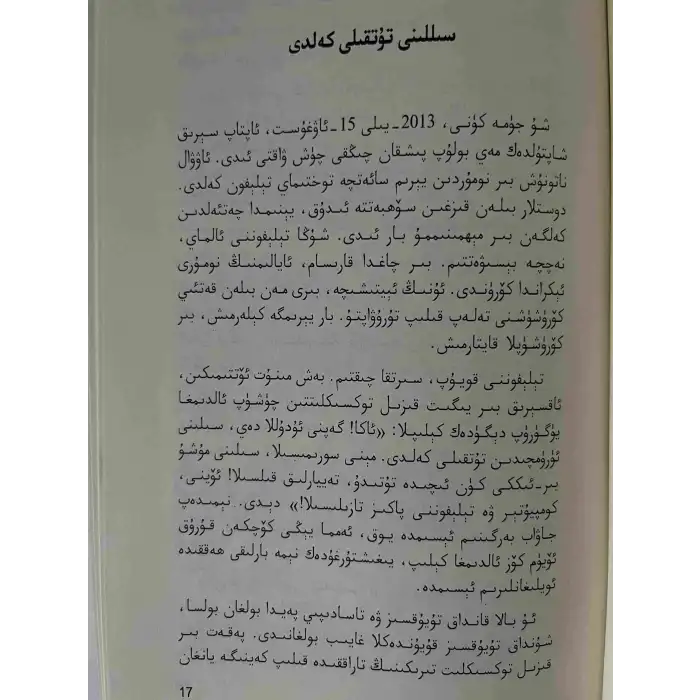 سىللىنى تۇتقىلى كەلدى
شۇ جۈمە كۈنى، 2013-يىلى 15-ئاۋغۇست، ئاپتاپ سېرىق
شاپتۇلدەك مەي بولۇپ پىشقان چىڭقى چۈش ۋاقتى ئىدى. ئاۋۋال
ناتونۇش بىر نومۇردىن يېرىم سائەتچە توختىماي تېلېفون كەلدى.
دوستلار بىلەن قىزغىن سۆھبەتتە ئىدۇق، يېنىمدا چەتئەلدىن
كەلگەن بىر مېھمىنىممۇ بار ئىدى. شۇڭا تېلېفوننى ئالماي،
نەچچە بېسىۋەتتىم. بىر چاغدا قارىسام، ئايالىمنىڭ نومۇرى
ئېكراندا كۆرۈندى. ئۇنىڭ ئېيتىشىچە، بىرى مەن بىلەن قەتئىي
كۆرۈشۈشنى تەلەپ قىلىپ تۇرۇۋاپتۇ. بار يېرىمگە كېلەرمىش، بىر
كۆرۈشۈپلا قايتارمىش.
تېلېفوننى قويۇپ، سىرتقا چىقتىم. بەش مىنۇت ئۆتتىمىكىن،
ئاقسېرىق بىر يىگىت قىزىل توكسىكلىتتىن چۈشۈپ ئالدىمغا
يۈگۈرۈپ دېگۈدەك كېلىپلا: «ئاكا! گەپنى ئۇدۇللا دەي، سىلىنى
ئۈرۈمچىدىن تۇتقىلى كەلدى. مېنى سورىمىسىلا، سىلىنى مۇشۇ
بىر-ئىككى كۈن ئىچىدە تۇتىدۇ، تەييارلىق قىلسىلا! ئۆينى،
كومپيۇتېر ۋە تېلېفوننى پاكىز تازىلىسىلا!» دېدى. نېمىدەپ
جاۋاب بەرگىنىم ئېسىمدە يوق، ئەمما يېڭى كۆچكەن قۇرۇق
ئۆيۈم كۆز ئالدىمغا كېلىپ، يىغىشتۇرغۇدەك نېمە بارلىقى ھەققىدە
ئويلىغانلىرىم ئېسىمدە.
ئۇ بالا قانداق تۇيۇقسىز ۋە تاسادىپىي پەيدا بولغان بولسا،
شۇنداق تۇيۇقسىز قۇيۇندەكلا غايىب بولغانىدى. پەقەت بىر
قىزىل توكسىكلىت تىرىكىنىڭ تاراققىدە قىلىپ كەينىگە يانغان
17